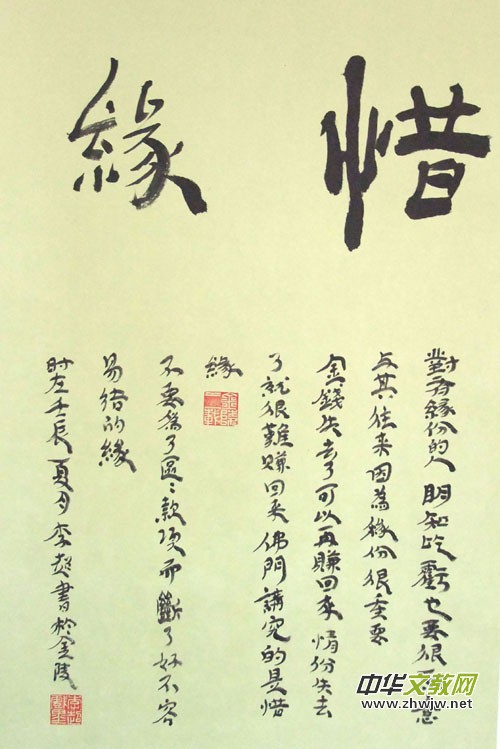 惜緣
對有緣份的人明知吃虧也要很意
与其往来因為緣份很重要
金錢失去了可以再賺回来情份失去
了就很難賺回来佛門講究的是惜
緣
不要為了區々款項而斷了好不容
易结的緣
時在壬辰夏月李書於金陵
中华文教网
www.zhwjw.net